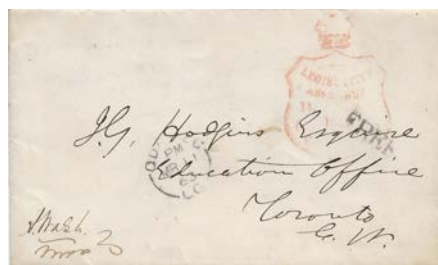 LEGISLATIVE
ASSEMBLY
FREE
J.G. Hodgins Esquire
Education Office
Toronto
C. W.
QU C.
PM
MR 11
63
L.C.
A. Walsh.